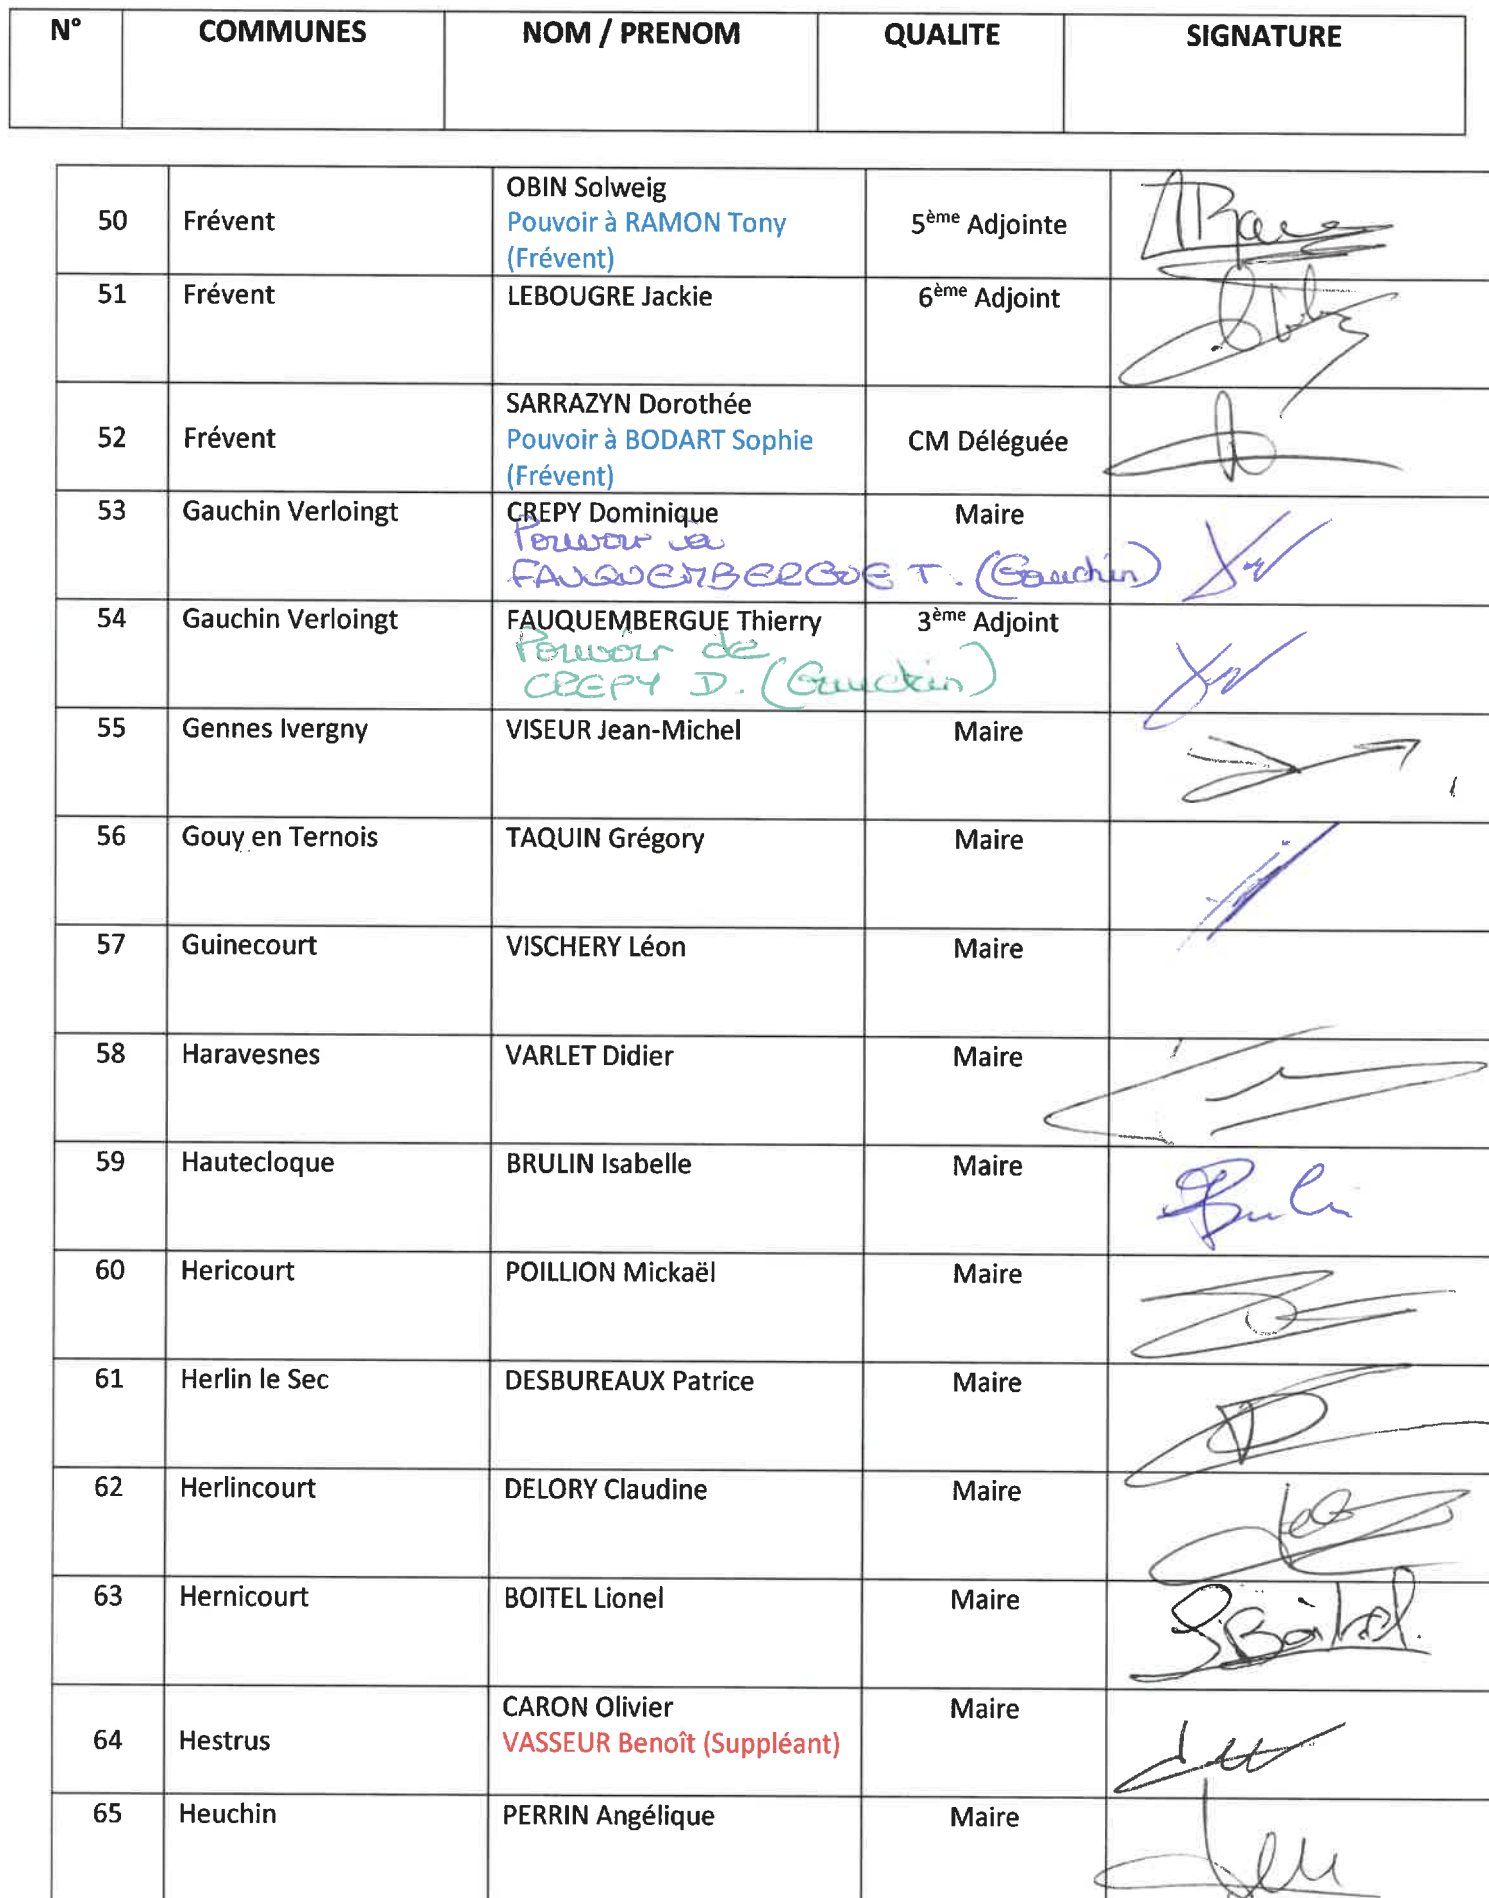 N° COMMUNES NOM / PRENOM QUALITE SIGNATURE
50 Frévent OBIN Solweig 5ème Adjointe
Pouvoir à RAMON Tony
(Frévent)
51 Frévent LEBOUGRE Jackie 6ème Adjoint
52 Frévent SARRAZYN Dorothée CM Déléguée
Pouvoir à BODART Sophie
(Frévent)
53 Gauchin Verloingt CREPY Dominique Maire
Pouvoir à
FAUQUEMBERGUE T. (Gauchin)
54 Gauchin Verloingt FAUQUEMBERGUE Thierry 3ème Adjoint
Pouvoir de
CREPY D. (Gauchin)
55 Gennes Ivergny VISEUR Jean-Michel Maire
56 Gouy en Ternois TAQUIN Grégory Maire
57 Guinecourt VISCHERY Léon Maire
58 Haravesnes VARLET Didier Maire
59 Hautecloque BRULIN Isabelle Maire
60 Hericourt POILLION Mickaël Maire
61 Herlin le Sec DESBUREAUX Patrice Maire
62 Herlincourt DELORY Claudine Maire
63 Hernicourt BOITEL Lionel Maire
64 Hestrus CARON Olivier Maire
VASSEUR Benoît (Suppléant)
65 Heuchin PERRIN Angélique Maire